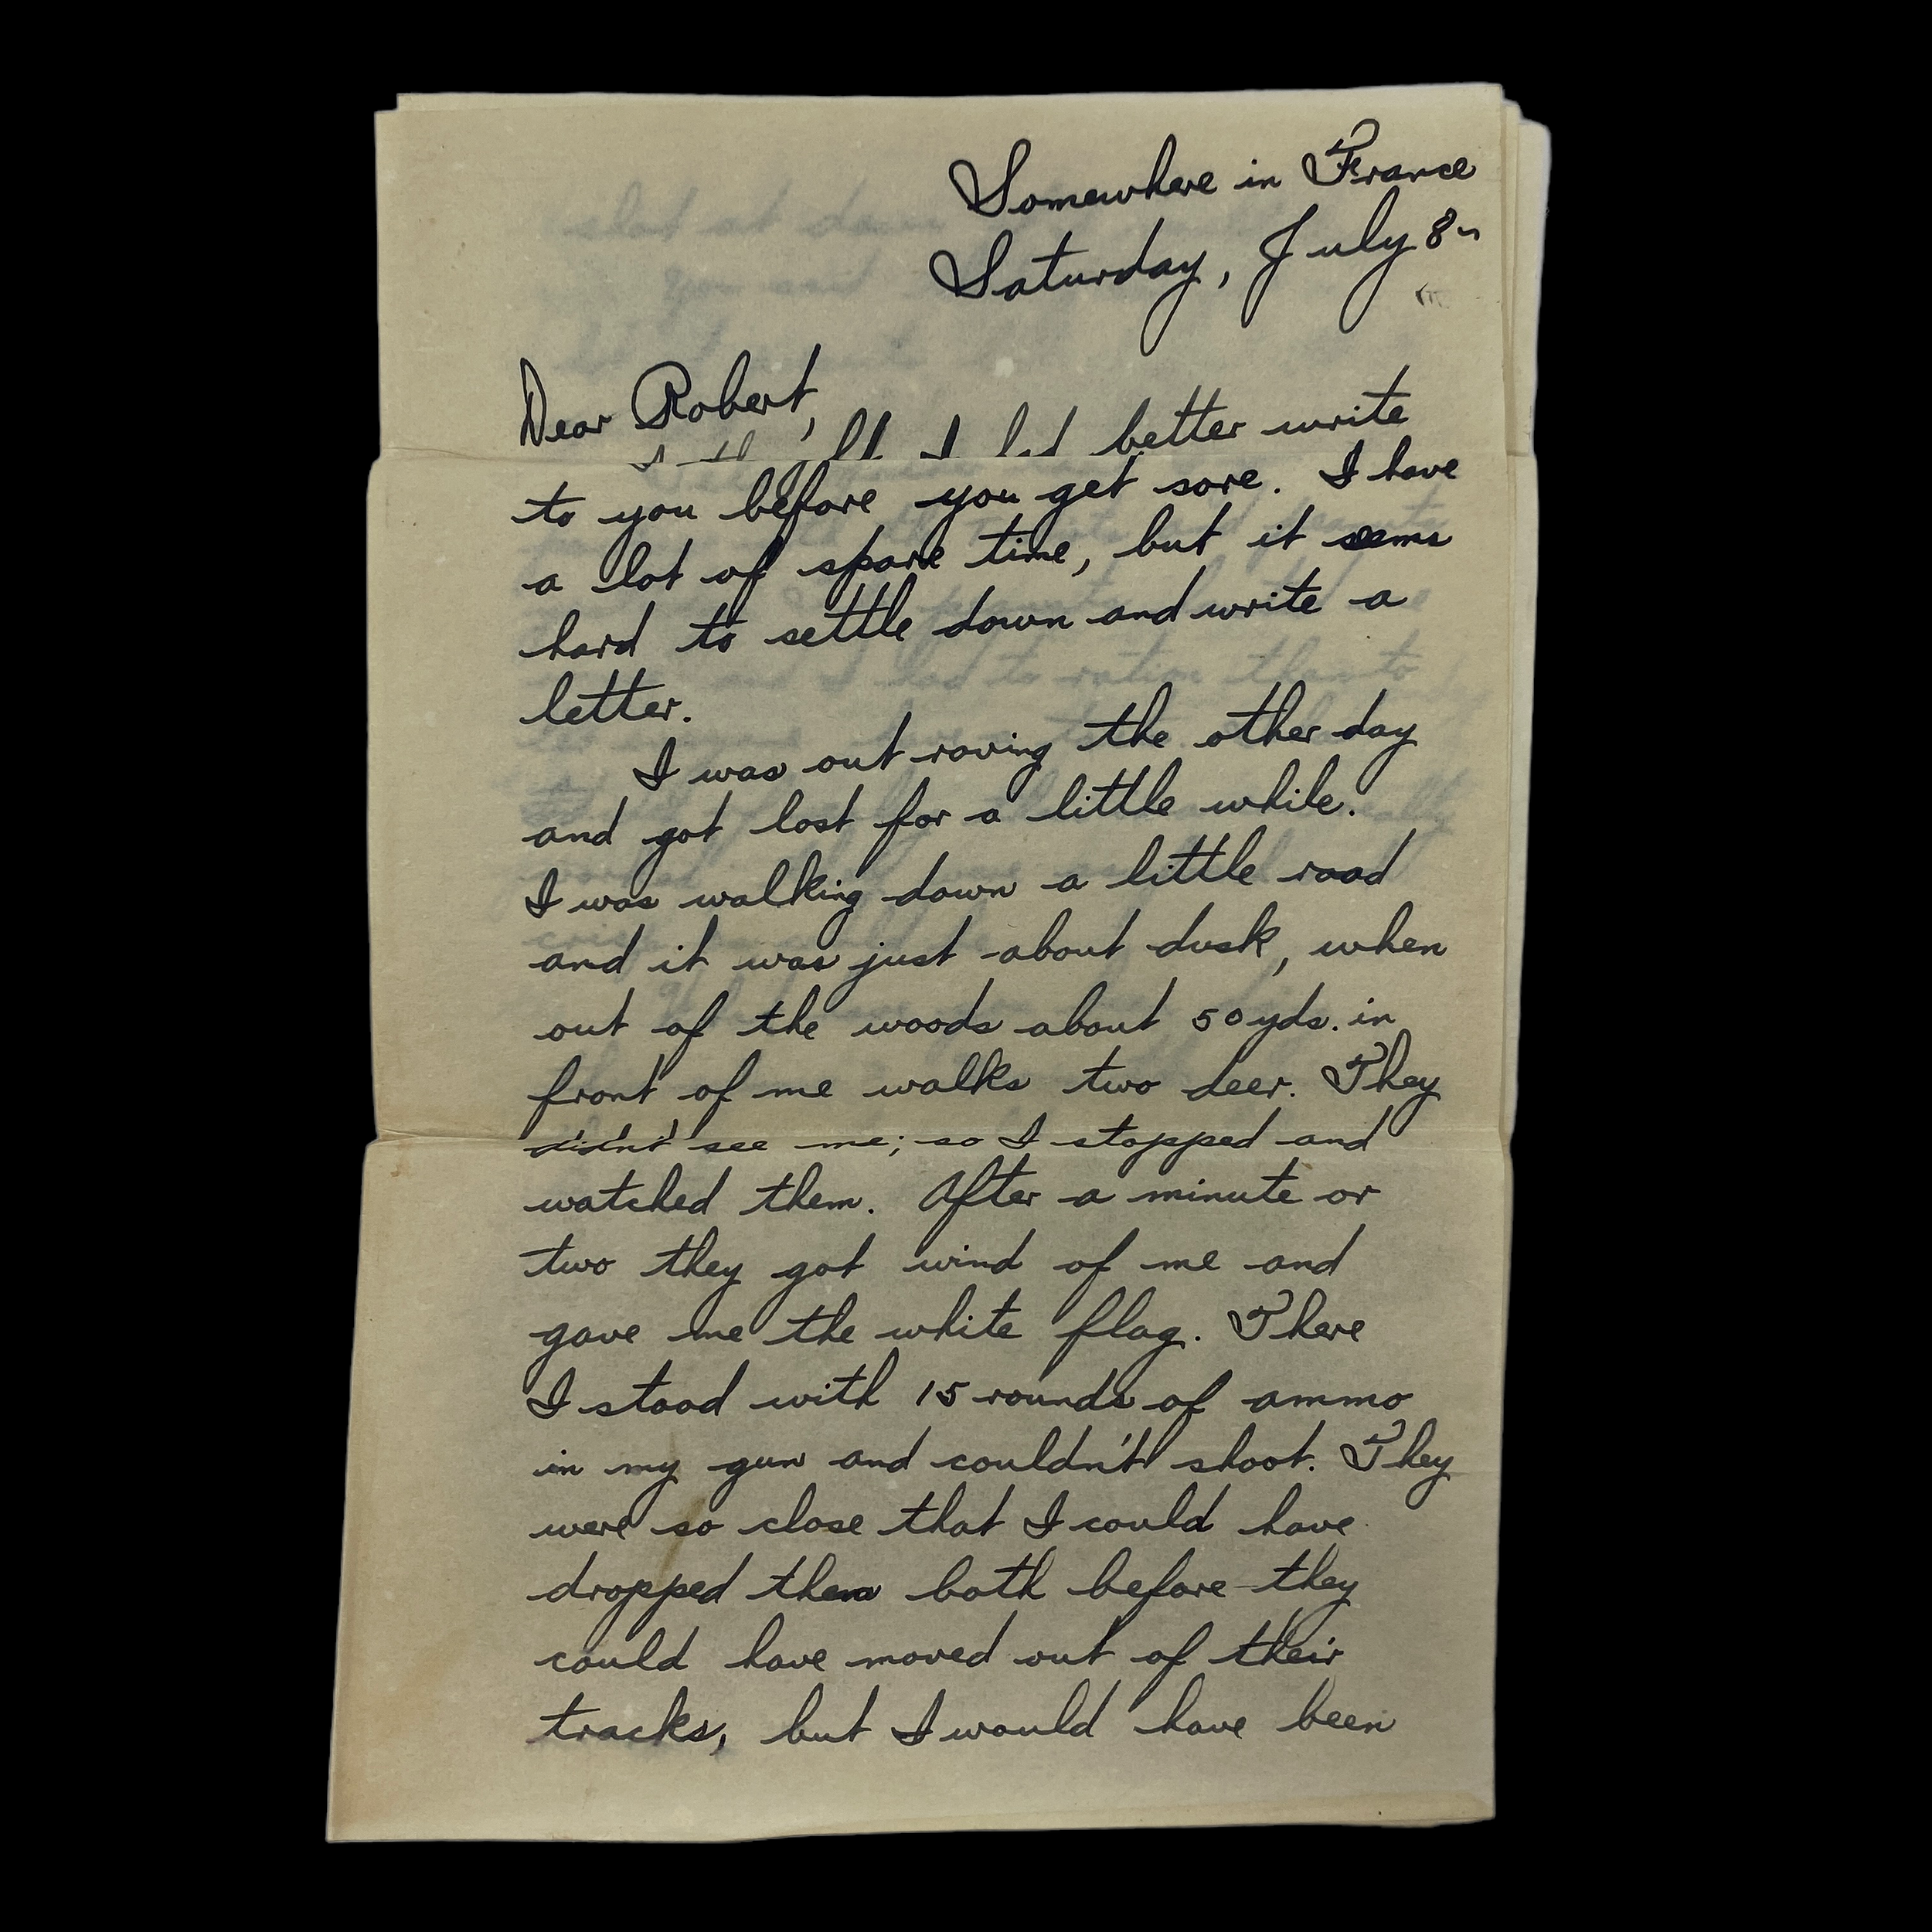 Somewhere in France
Saturday, July 8
Dear Robert,
I thought I had better write
to you before you get sore. I have
a lot of spare time, but it seems
hard to settle down and write a
letter.
I was out roving the other day
and got lost for a little while.
I was walking down a little road
and it was just about dusk, when
out of the woods about 50 yds. in
front of me walks two deer. They
didn't see me; so I stopped and
watched them. After a minute or
two they got wind of me and
gave me the white flag. There
I stood with 15 rounds of ammo
in my gun and couldn't shoot. They
were so close that I could have
dropped them both before they
could have moved out of their
tracks, but I would have been